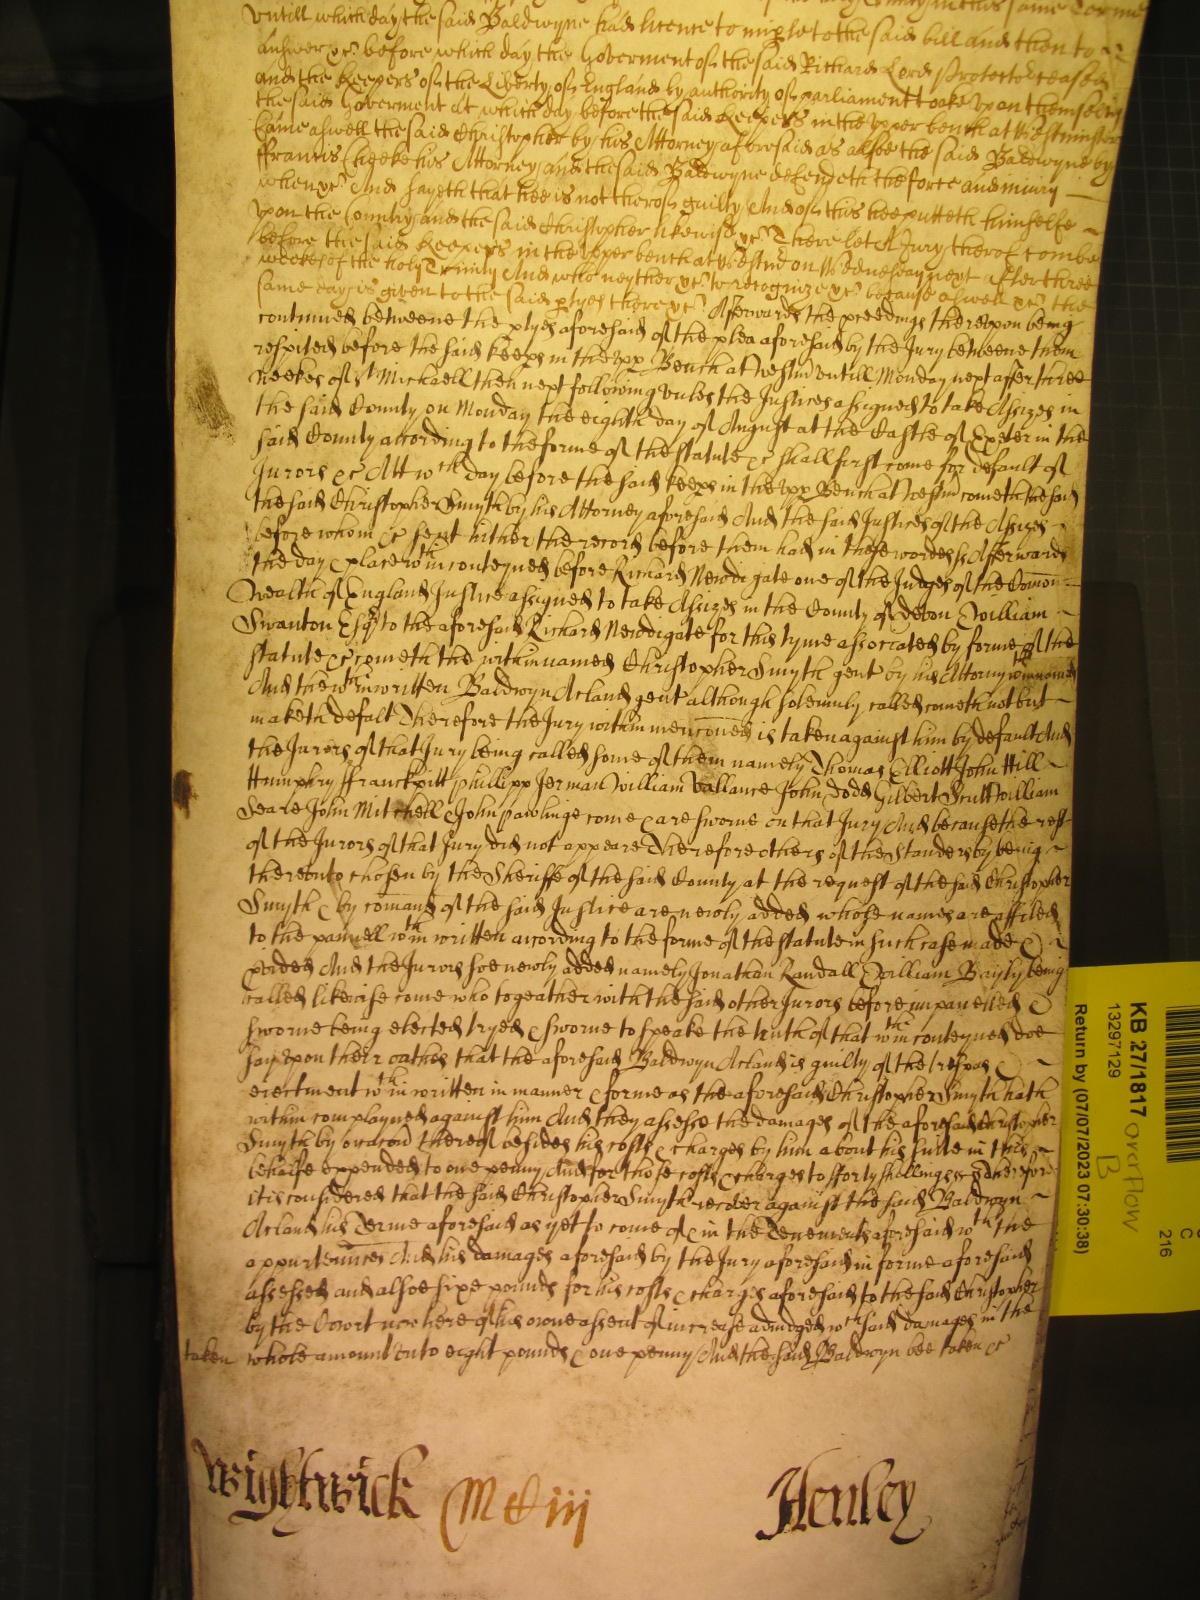 untill which day the said Baldwyne had licence to imple to the said bill and then to
answer &c before which day the Goverment of the said Richard Lord Protector ceased
and the Keepers of the Liberty of England by authority of parliament tooke upon them
the said Goverment At which day before the said Keepers in the upper bench at Westminster
Came aswell the said Christopher by his Attorney aforesaid as alsoe the said Baldwyne by
ffrancis Cheeke his Attorney And the said Baldwyne defendeth the force and iniury
when &c And sayeth that hee is not therof guilty And of this hee putteth himselfe
upon the Country and the said Christopher likewise &c Therefore let A Jury therof come
before the said Keepers in the upper bench at Westmr on Wednesday next after three
weekes of the holy Trinity And who neyther &c to recognize &c because aswell &c the
same day is given to the said ptyes there &c Afterwards the pceedings thereupon being
continued betweene the ptyes aforesaid of the plea aforesaid by the Jury betweene them
respited before the said keeps in the upp Bench at Westmr untill Monday next after three
weekes of St Michaell then next following unles the Justices assigned to take Assizes in
the said County on Monday the eighth day of August at the Castle of Exeter in the
said County according to the forme of the statute &c shall first come for default of
Jurors &c Att wch day before the said keeps in the upp Bench at Westmr cometh the said
the said Christopher Smyth by his Attorney aforesaid And the said Justices of the Assizes
before whom &c sent hither the record before them had in these wordes ss Afterwards
the day & place wthin conteyned before Richard Newdigate one of the Judges of the Comon
Wealth of England Justice assigned to take Assizes in the County of devon William
Swanton Esqr to the aforesaid Richard Newdigate for this tyme associated by forme of the
statute &c cometh the within named Christopher Smyth gent by his Attorny wthin named
And the wthin written Baldwyn Acland gent although solemnly called cometh not but
maketh defalt Therefore the Jury within menconed is taken against him by default And
the Jurors of that Jury being called some of them namely Thomas Elliott John Hill
Humphry ffranckpitt Phillipp Jerman William Vallance John Dodd Gilbert Scutt William
Seare John Mitchell & John Pawlinge come & are sworne on that Jury And because the rest
of the Jurors of that Jury did not appeare Therefore others of the Standers by being
thereunto chosen by the Sheriffe of the said County at the request of the said Christopher
Smyth & by comand of the said Justice are newly added whose names are affiled
to the pannell wthin written according to the forme of the statute in such case made &
pvided And the Jurors soe newly added namely Jonathan Randall William Bayly being
called likewise come who togeather with the said other Jurors before impanelled &
sworne being elected tryed & sworne to speake the truth of that wthin conteyned doe
say upon their oathes that the aforesaid Baldwyn Acland is guilty of the trespas &
eiectment wthin written in manner & forme as the aforesaid Christopher Smyth hath
within complayned against him And they assesse the damages of the aforesaid Christopher
Smyth by occacon thereof besides his costs & charges by him about his suite in this
behalfe expended to one penny And for those costs & charges to fforty shillings Therefore
it is considered that the said Christopher Smyth recover against the said Baldwyn
Acland his Terme aforesaid as yet to come of & in the Tenements aforesaid wth the
appurtennces And his damages aforesaid by the Jury aforesaid in forme aforesaid
assessed and alsoe sixe pounds for his costs & charges aforesaid to the said Christopher
by the Court now here of his owne assent of increase adiudged wch said damages in the
taken whole amount unto eight pounds & one penny And the said Baldwyn bee taken &c
Wightwick MCiii Henley
KB 27/1817 overflow
B
13297129
Return by (07/07/2023 07:30:38)
C
216